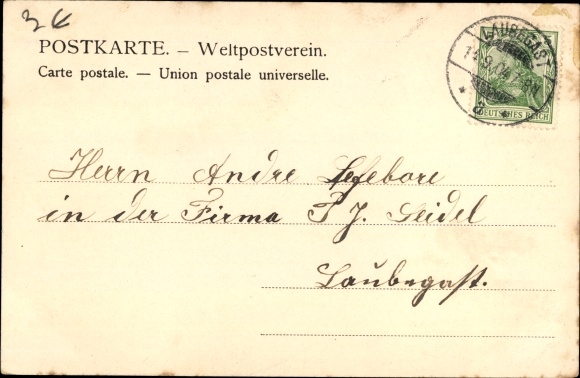 3 €
POSTKARTE. – Weltpostverein.
Carte postale. — Union postale universelle.
LAUBEGAST
DEUTSHES REICH
Herrn Andre Lefebore
in der Firma T. J. Seidel
Laubegast.